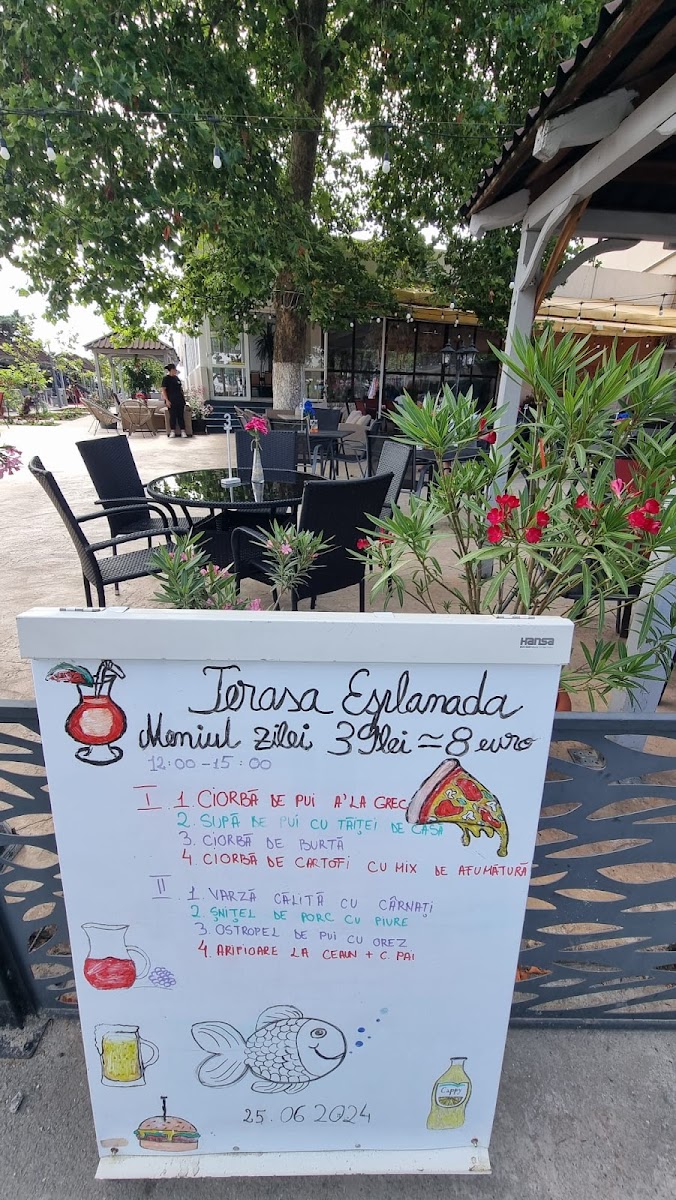 HANSA
Terasa Esplanada
Meniul zilei 39lei = 8 euro
12:00 - 15:00
I 1. CIORBĂ DE PUI A'LA GREC
2. SUPĂ DE PUI CU TĂIȚEI DE CASĂ
3. CIORBĂ DE BURTĂ
4. CIORBĂ DE CARTOFI CU MIX DE AFUMĂTURĂ
II 1. VARZĂ CĂLITĂ CU CÂRNAȚI
2. ȘNIȚEL DE PORC CU PIURE
3. OSTROPEL DE PUI CU OREZ
4. ARIPIOARE LA CEAUN + C. PAI
Cappy
25.06.2024